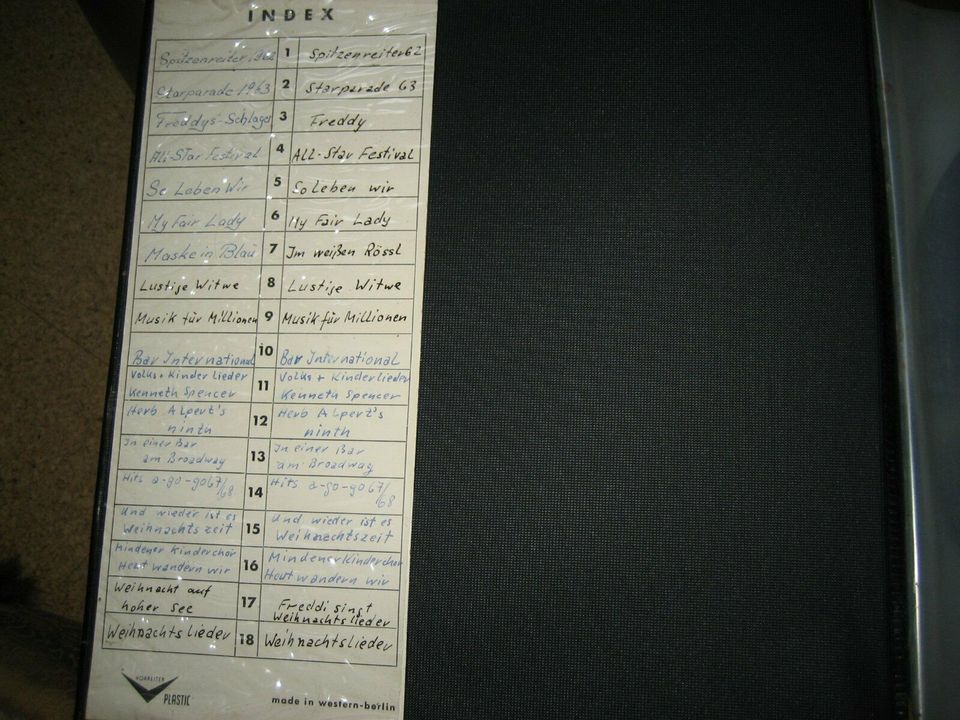 INDEX
Spitzenreiter 1962 1 Spitzenreiter 62
Starparade 1963 2 Starparade 63
Freddys-Schlager 3 Freddy
All-Star Festival 4 All-Star Festival
So Leben Wir 5 So leben wir
My Fair Lady 6 My Fair Lady
Maske in Blau 7 Im weißen Rössl
Lustije Witwe 8 Lustije Witwe
Musik für Millionen 9 Musik für Millionen
Bar International 10 Bar International
Volks + Kinder Lieder 11 Volks + Kinderlieder
Kenneth Spencer Kenneth Spencer
Herb Alpert's 12 Herb Alpert's
ninth ninth
In einer Bar 13 In einer Bar
am Broadway am Broadway
Hits a-go-go 67/68 14 Hits a-go-go 67/68
Und wieder ist es 15 Und wieder ist es
Weihnachtszeit Weihnachtszeit
Mindener Kinderchor 16 Mindener Kinderchor
Heut wandern wir Heut wandern wir
Weihnacht auf 17 Freddi singt
hoher See Weihnachtslieder
Weihnachtslieder 18 Weihnachtslieder
VORREITER
PLASTIC made in western-berlin